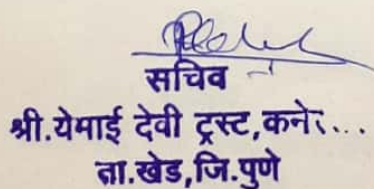 सचिव
श्री.येमाई देवी ट्रस्ट,कने
ता.खेड,जि.पुणे